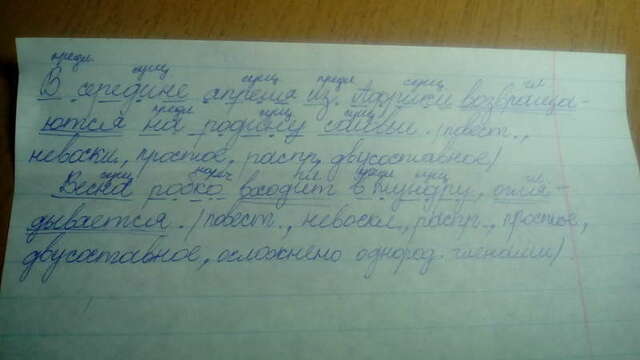 предл. сущ.      сущ. предл. сущ.      гл.
В середине апреля из Африки возвраща-
предл. сущ. сущ.
ются на родину соловьи. (повест.,
невоскл., простое, распр., двусоставное)
сущ. нареч. гл. предл. сущ. гл.
Весна робко входит в тундру, огля-
дывается. (повест., невоскл., распр., простое,
двусоставное, осложнено однород. членами)